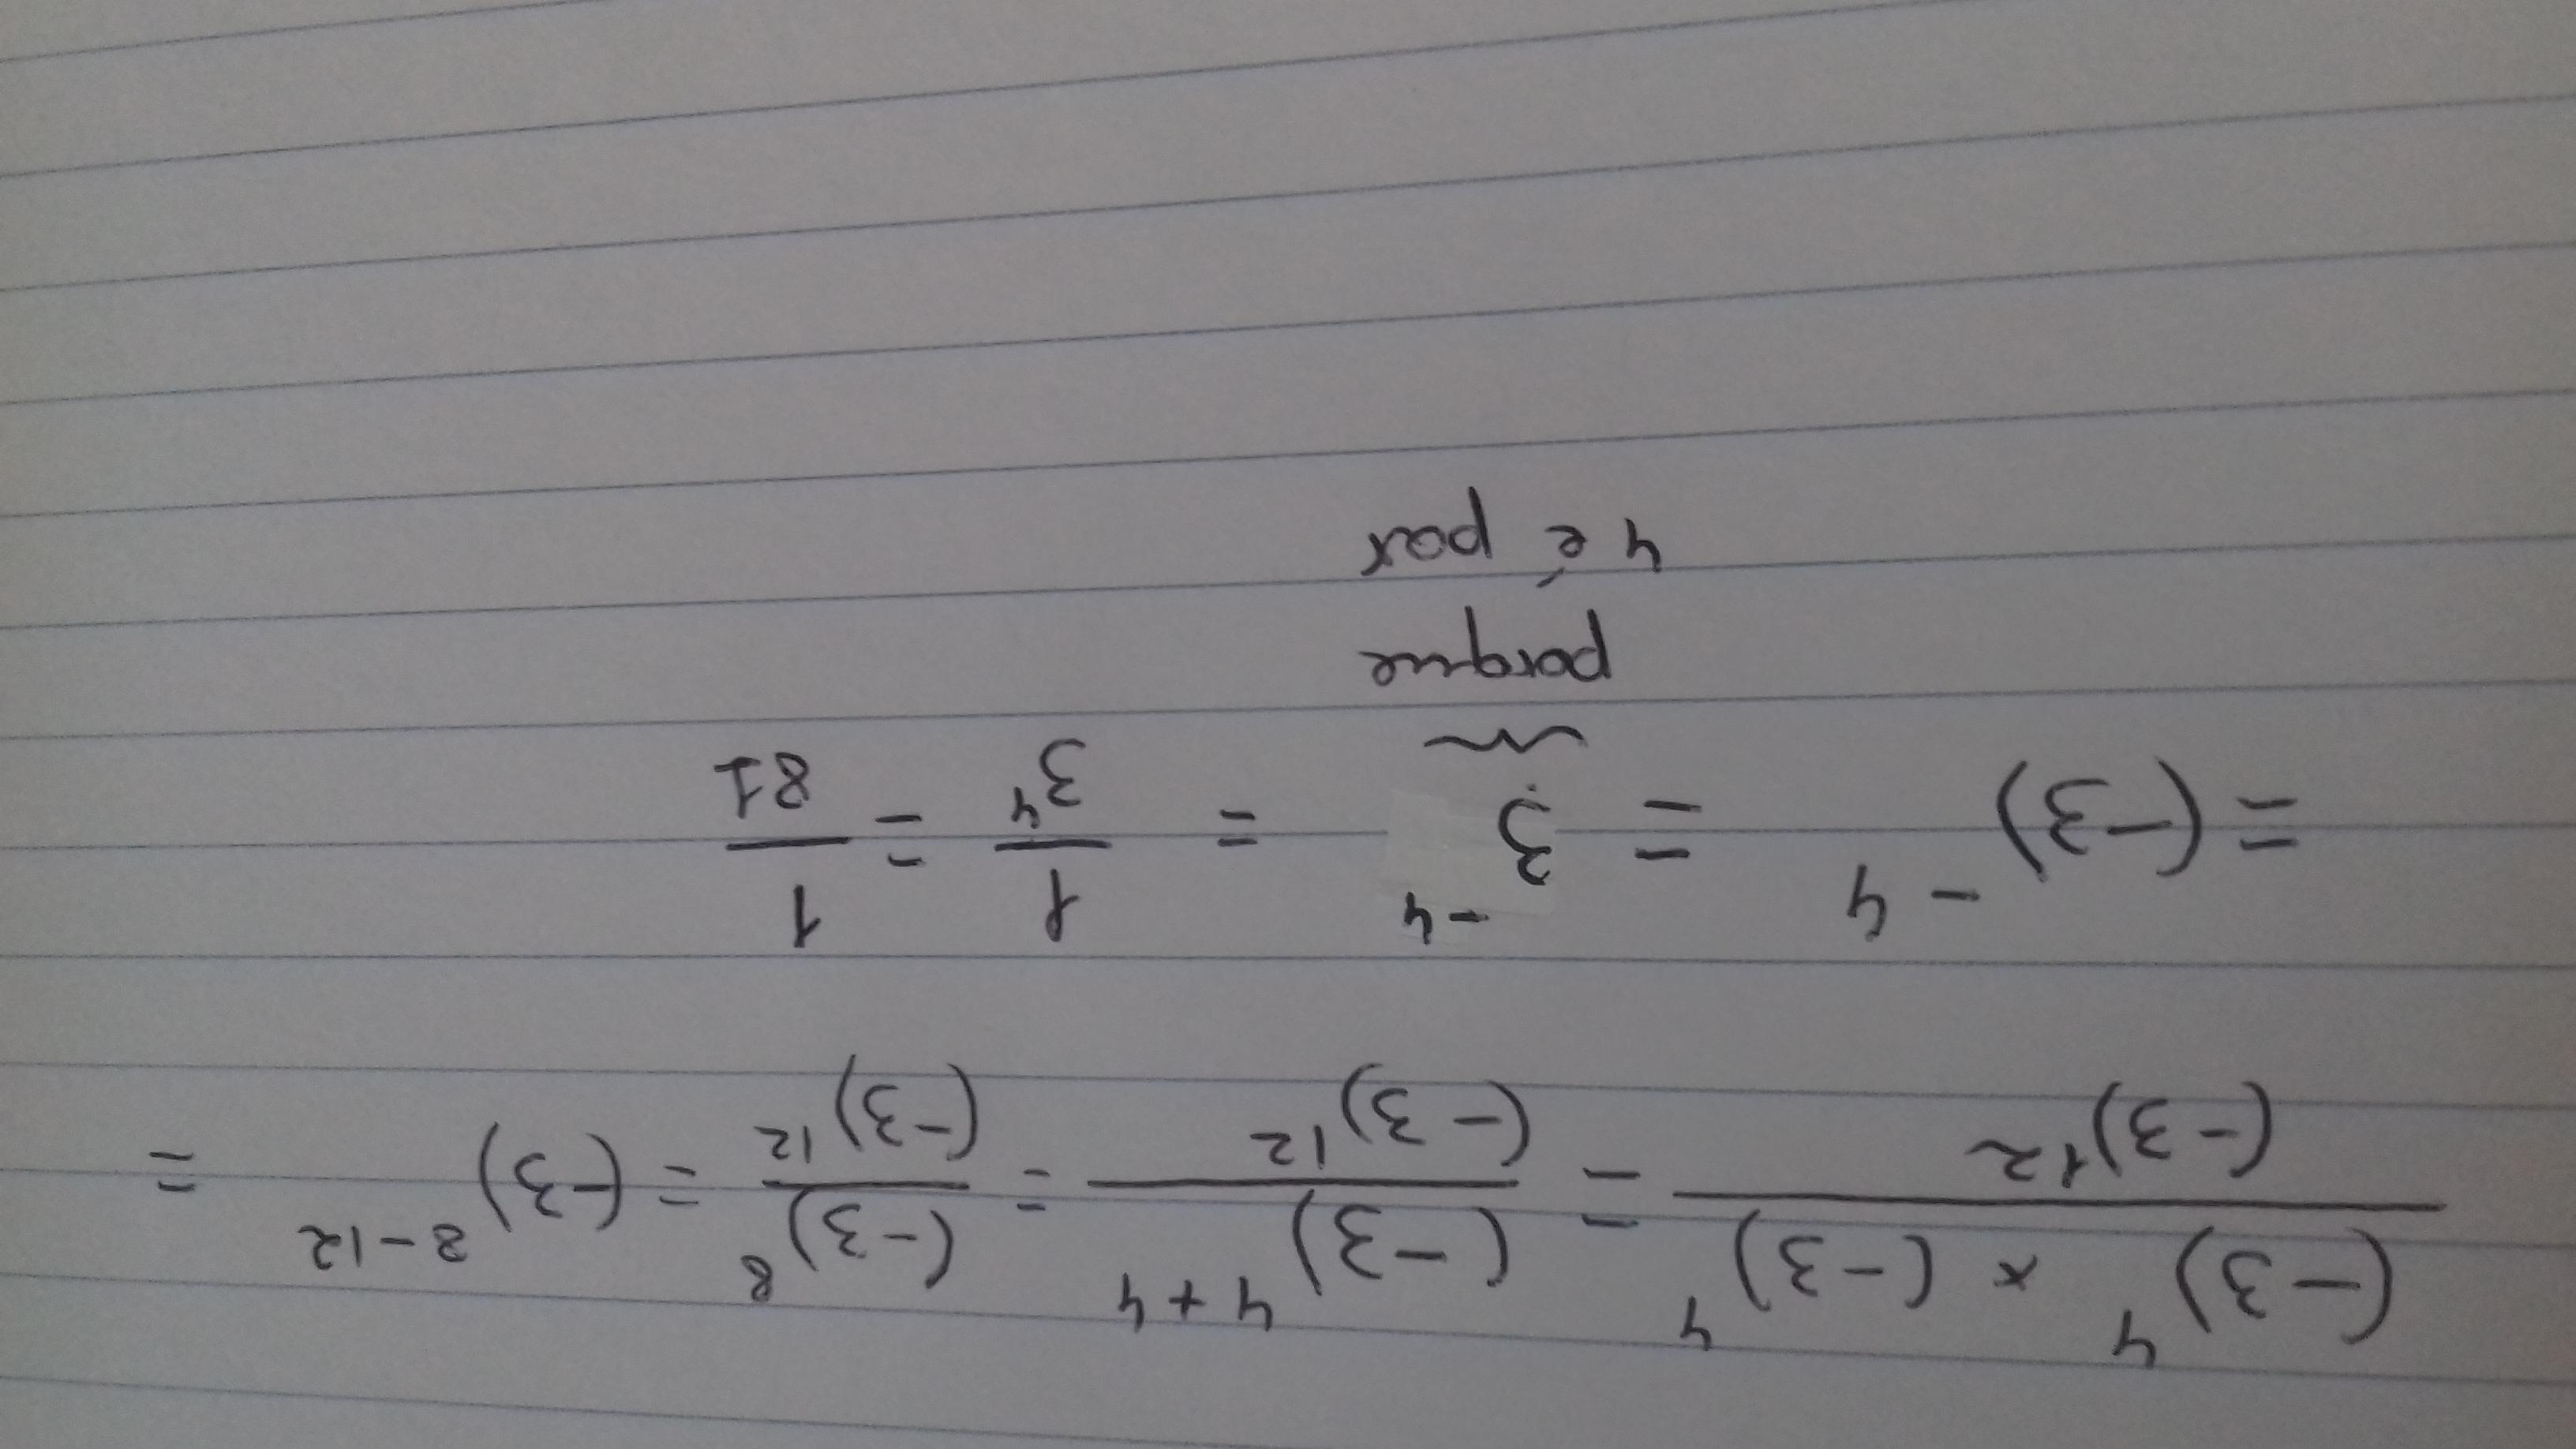 (-3)⁴ x (-3)⁴ / (-3)¹² = (-3)⁴⁺⁴ / (-3)¹² = (-3)⁸ / (-3)¹² = (-3)⁸⁻¹² =
= (-3)⁻⁴ = 3⁻⁴ = 1/3⁴ = 1/81
porque
4 é par